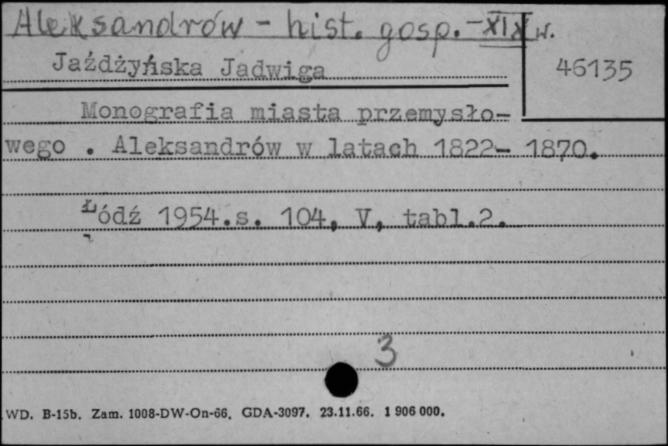 Aleksandrów - hist. gosp. - XIX w.
Jaźdżyńska Jadwiga
46135
Monografia miasta przemysło-
wego . Aleksandrów w latach 1822- 1870.
Łódź 1954.s. 104, V, tabl.2.
3
WD. B-15b. Zam. 1008-DW-On-66. GDA-3097. 23.11.66. 1 906 000.